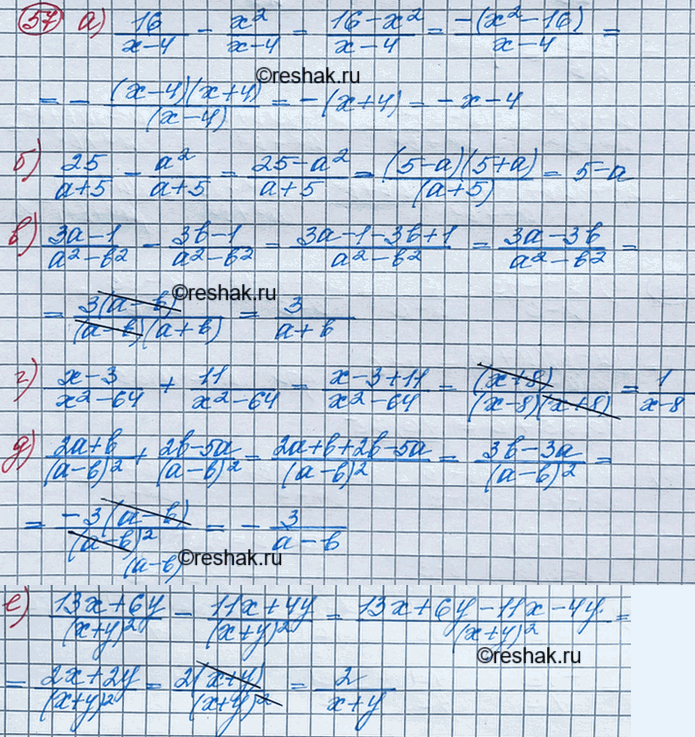 57 а) 16/(x-4) - x²/(x-4) = (16-x²)/(x-4) = -(x²-16)/(x-4) =
©reshak.ru
= - (x-4)(x+4)/(x-4) = -(x+4) = -x-4
б) 25/(a+5) - a²/(a+5) = (25-a²)/(a+5) = (5-a)(5+a)/(a+5) = 5-a
в) (3a-1)/(a²-b²) - (3b-1)/(a²-b²) = (3a-1-3b+1)/(a²-b²) = (3a-3b)/(a²-b²) =
©reshak.ru
= 3(a-b)/(a-b)(a+b) = 3/(a+b)
г) (x-3)/(x²-64) + 11/(x²-64) = (x-3+11)/(x²-64) = (x+8)/(x-8)(x+8) = 1/(x-8)
д) (2a+b)/(a-b)² + (2b-5a)/(a-b)² = (2a+b+2b-5a)/(a-b)² = (3b-3a)/(a-b)² =
= -3(a-b)/(a-b)² = - 3/(a-b)
(a-b)
©reshak.ru
е) (13x+6y)/(x+y)² - (11x+4y)/(x+y)² = (13x+6y-11x-4y)/(x+y)² =
©reshak.ru
= (2x+2y)/(x+y)² = 2(x+y)/(x+y)² = 2/(x+y)